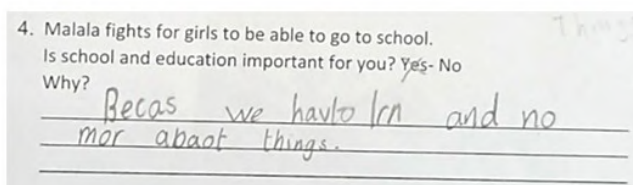 4. Malala fights for girls to be able to go to school.
Is school and education important for you? Yes- No
Why?
Becas we havto lrn and no
mor abaot things.